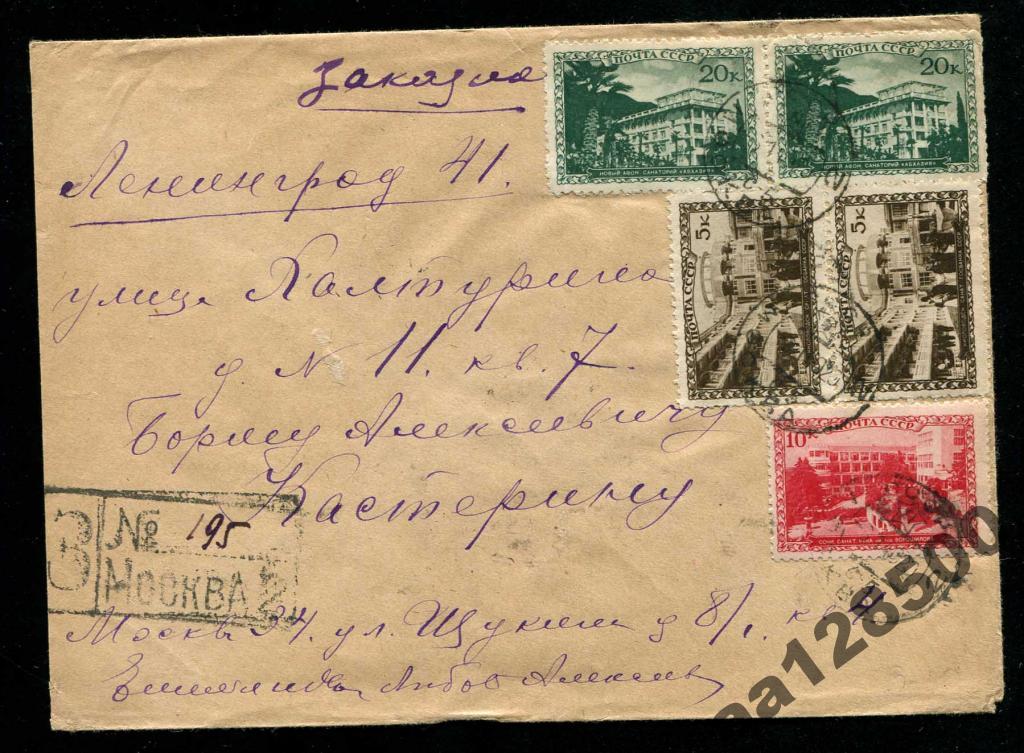 Заказное
ПОЧТА СССР
20к
ПОЧТА СССР
20к
НОВЫЙ АФОН. САНАТОРИЙ «АБХАЗИЯ»
НОВЫЙ АФОН. САНАТОРИЙ «АБХАЗИЯ»
Ленинград 41.
ПОЧТА СССР 5к
ПОЧТА СССР 5к
улица Халтурина
д N 11. кв. 7.
Борису Алексеевичу
Кастерину
10к
ПОЧТА СССР
СОЧИ САНАТ.
З
№ 195
МОСКВА
Москва 34. ул. Щукина д 8/1. кв
Любовь Алексеев
aa128500